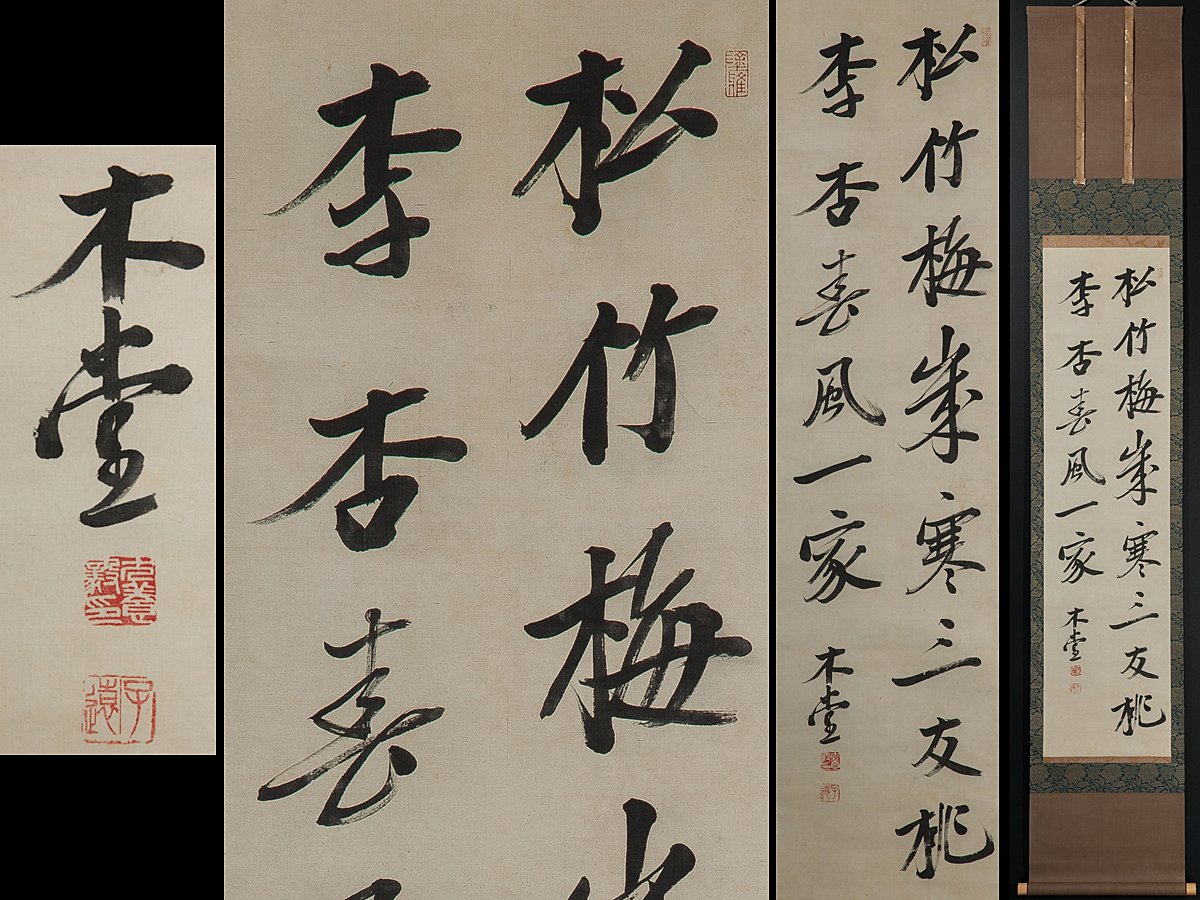 木堂
犬養
毅印
子遠
松竹梅
李杏春
松竹梅歳寒三友桃
李杏春風一家
木堂
松竹梅歳寒三友桃
李杏春風一家
木堂